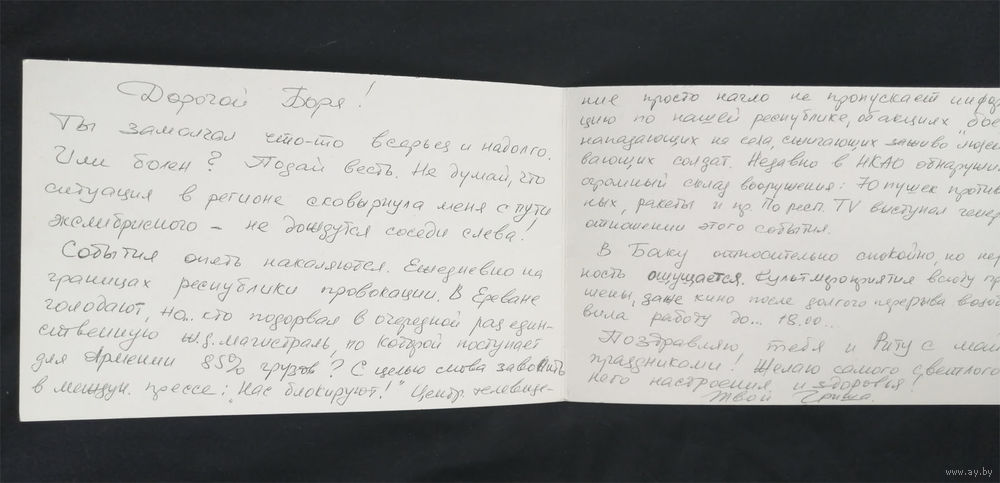 Дорогой Боря!
Ты замолчал что-то всерьез и надолго.
Или болен? Подай весть. Не думай, что
ситуация в регионе сковырнула меня с пути
экслибрисного – не дождутся соседи слева!
События опять накаляются. Ежедневно на
границах республики провокации. В Ереване
голодают, но.. кто подорвал в очередной раз един-
ственную ж.д. магистраль, по которой поступает
для Армении 85% грузов? С целью снова завопить
в междун. прессе: "Нас блокируют!" Центр. телевиде-
ние просто нагло не пропускает инфор
цию по нашей республике, об акциях "бое
нападающих на села, сжигающих заживо людей
вающих солдат. Недавно в НКАО обнаружи
огромный склад вооружения: 70 пушек против
ных, ракеты и пр. По респ. TV выступал генер
отношении этого события.
В Баку относительно спокойно, но нер
ность ощущается. Культмероприятия всюду
шены, даже кино после долгого перерыва возоб
вила работу до... 18.00..
Поздравляю тебя и Риту с май
праздниками! Желаю самого светлого
него настроения и здоровья!
Твой Гриша.
www.ay.by